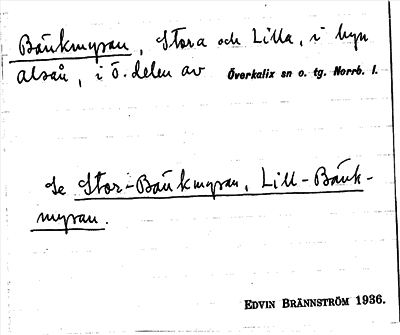 Bänkmyran, Stora och Lilla, i byn
alsån, i ö. delen av Överkalix sn o. tg. Norrb. l.
Se Stor-Bänkmyran, Lill-Bänk-
myran.
EDVIN BRÄNNSTRÖM 1936.